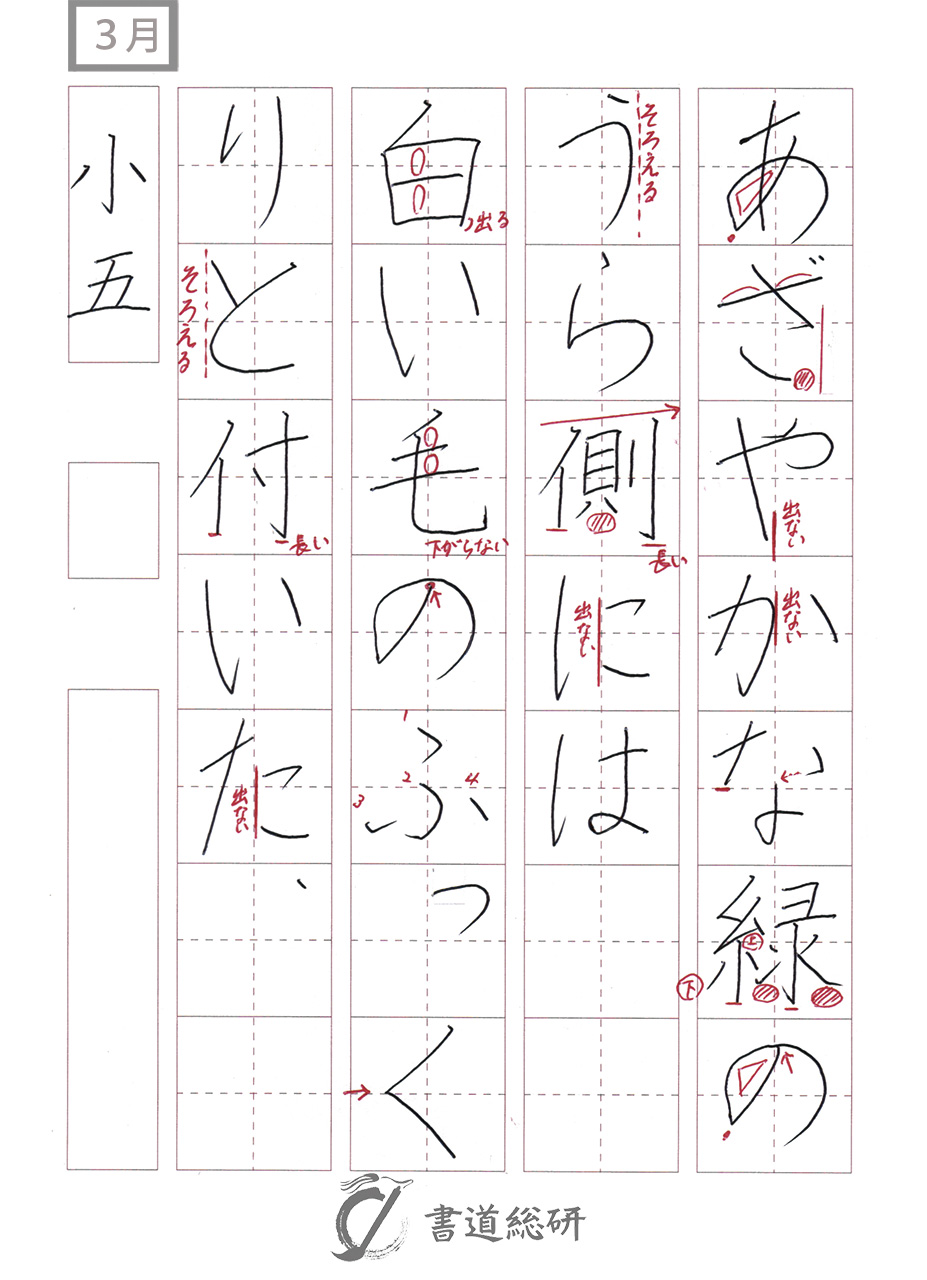 3月
あざやかな緑の
そろえる
出ない
出ない
上
下
うら側には
そろえる
長い
出ない
白い毛のふっく
出る
下がらない
1
2
3
4
りと付いた、
そろえる
長い
出ない
小五
書道総研